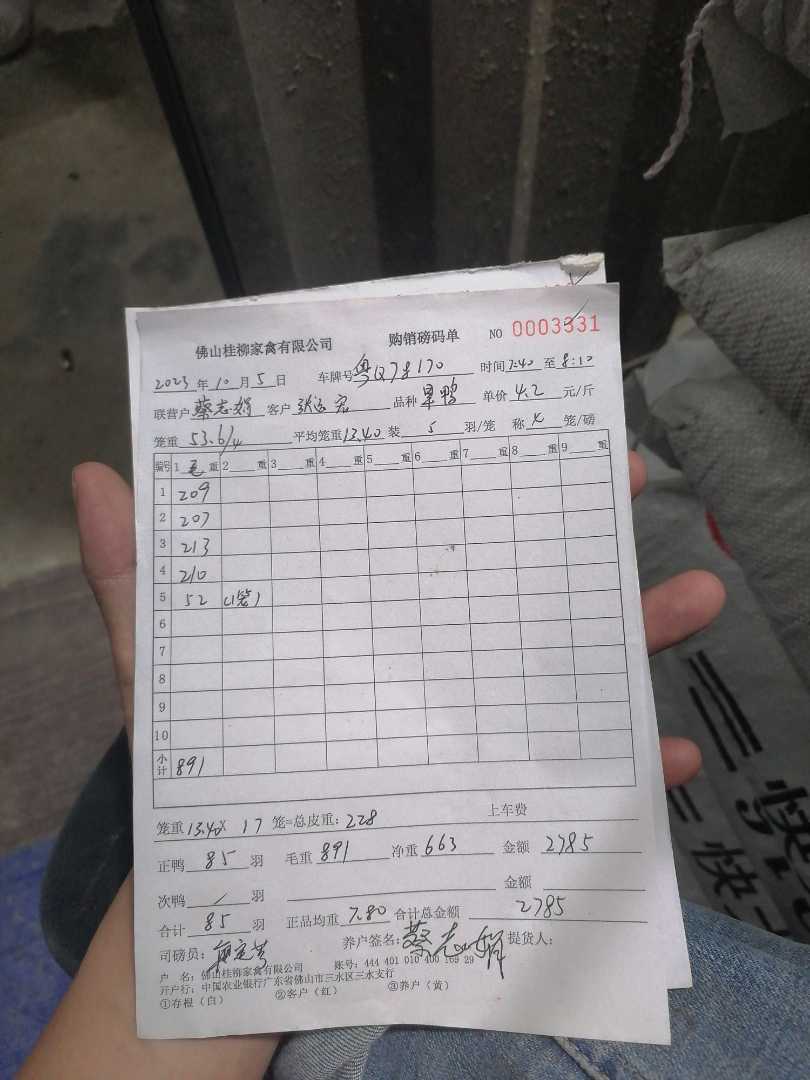 佛山桂柳家禽有限公司 购销磅码单 NO 0003331
2023 年 10 月 5 日 车牌号 时间 7:40 至 8:10
联营户 蔡志娟 客户 品种 单价 4.2 元/斤
笼重 53.6/4 平均笼重 13.40 装 5 羽/笼 称 笼/磅
编号 1 毛 重 2 重 3 重 4 重 5 重 6 重 7 重 8 重 9 重
1 209
2 207
3 213
4 210
5 52 (1笼)
6
7
8
9
10
小计 891
笼重 13.40 X 17 笼=总皮重: 228 上车费
正鸭 85 羽 毛重 891 净重 663 金额 2785
次鸭 / 羽 金额
合计 85 羽 正品均重 7.80 合计总金额 2785
司磅员: 养户签名: 蔡志娟 提货人:
户 名: 佛山桂柳家禽有限公司 账号: 444 401 010 400 169 29
开户行: 中国农业银行广东省佛山市三水区三水支行
①存根(白) ②客户(红) ③养户(黄)
快
快